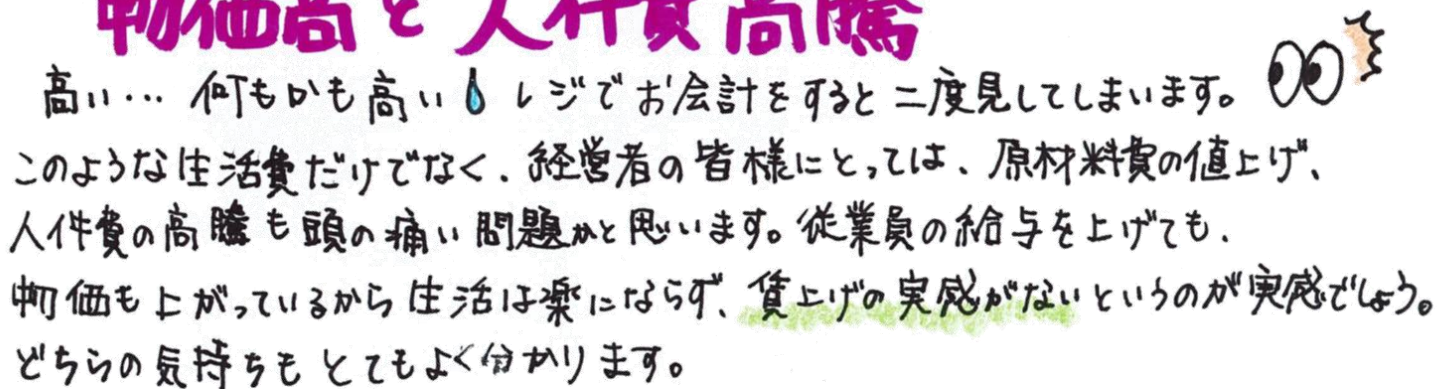 物価高と人件費高騰
高い… 何もかも高い レジでお会計をすると二度見してしまいます。
このような生活費だけでなく、経営者の皆様にとっては、原材料費の値上げ、
人件費の高騰も頭の痛い問題かと思います。従業員の給与を上げても、
物価も上がっているから生活は楽にならず、賃上げの実感がないというのが実感でしょう。
どちらの気持ちもとてもよく分かります。